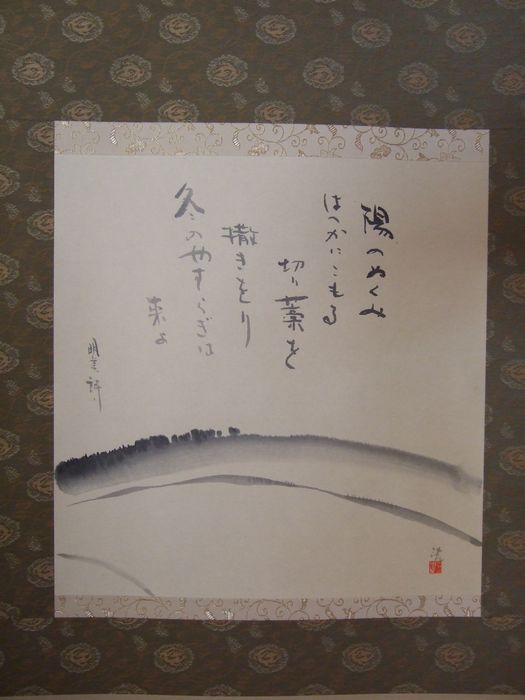 陽のぬくみ
はつかにこもる
切り藁を
撒きをり
冬のやすらぎは
来よ